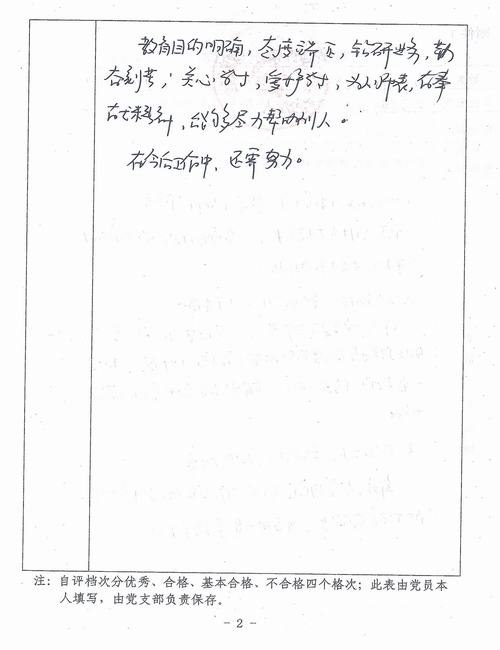 教育目的明确，态度端正，钻研业务，勤
奋刻苦；关心学生，爱护学生，为人师表，在
能够尽力帮助别人。
在今后工作中，还需努力。
注：自评档次分优秀、合格、基本合格、不合格四个格次；此表由党员本
人填写，由党支部负责保存。
- 2 -